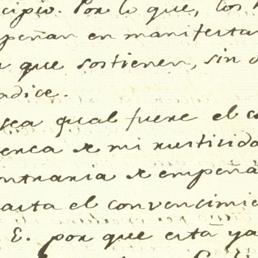 cipio. Por lo que, los
peñan en manifestar
que sostienen, sin
adice.
sea qual fuere el c
erca de mi rusticida
ontraria se empeña
asta el convencimie
E. por que está ya